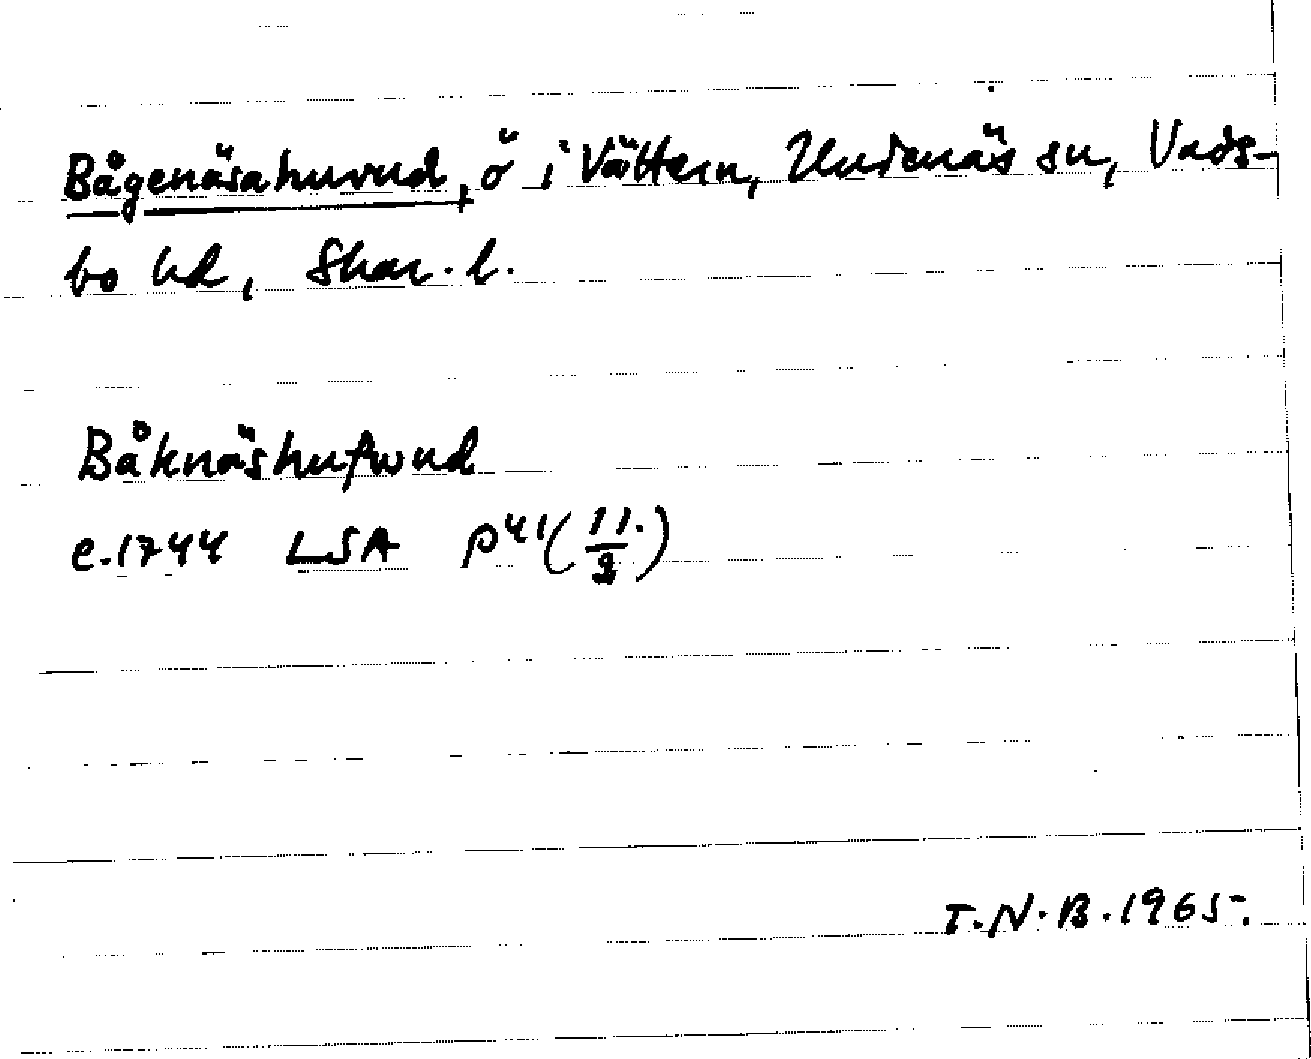 Bågenäsahuvud, ö i Vättern, Undenäs sn, Vads-
bo hd, Skar. l.
Båknäshufwud
c. 1744 LSA P41 (11./2)
T.N.B. 1965.